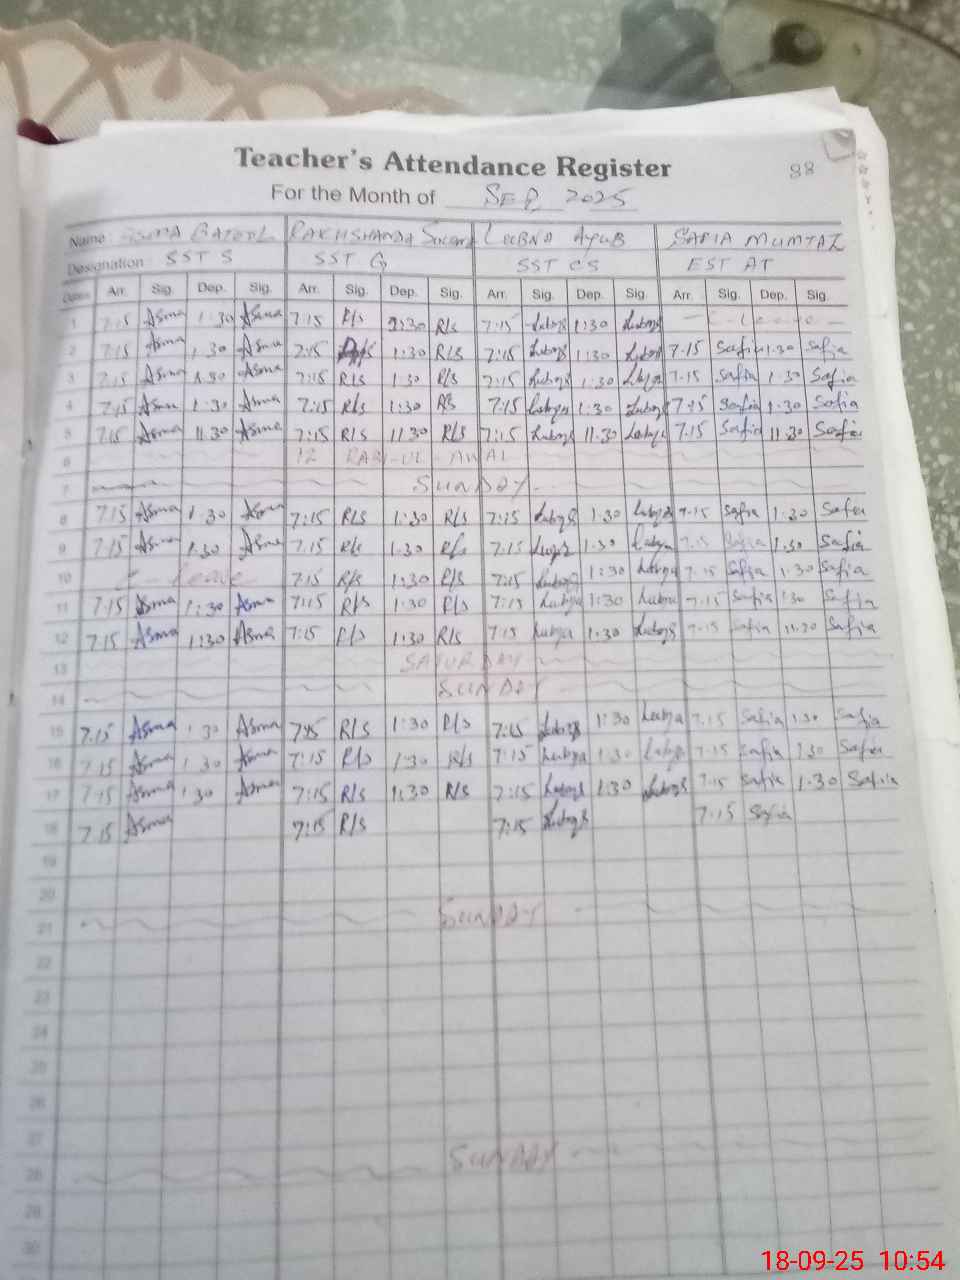 Teacher's Attendance Register
88
For the Month of SEP 2025
Name: ASMA BATOOL RAKHSHANDA LUBNA AYUB SAFIA MUMTAZ
Designation SST S SST G SST CS EST AT
Dates Arr. Sig. Dep. Sig. Arr. Sig. Dep. Sig. Arr. Sig. Dep. Sig. Arr. Sig. Dep. Sig.
1 7:15 Asma 1:30 Asma 7:15 R/s 1:30 R/s 7:15 Lubna 1:30 Lubna
2 7:15 Asma 1:30 Asma 7:15 1:30 R/s 7:15 Lubna 1:30 Lubna 7.15 Safia 1.30 Safia
3 7.15 Asma 1.30 Asma 7:15 R/s 1:30 R/s 7:15 Lubna 1:30 Lubna 7.15 Safia 1.30 Safia
4 7.15 Asma 1.30 Asma 7:15 R/s 1:30 R/s 7:15 Lubna 1:30 Lubna 7.15 Safia 1.30 Safia
5 7.15 Asma 11.30 Asma 7:15 R/s 11:30 R/s 7:15 Lubna 11.30 Lubna 7.15 Safia 11.30 Safia
6 12 RABI-UL-AWAL
7 SUNDAY
8 7.15 Asma 1.30 Asma 7:15 R/s 1:30 R/s 7:15 Lubna 1:30 Lubna 7.15 Safia 1:30 Safia
9 7.15 Asma 1.30 Asma 7.15 R/s 1.30 R/s 7.15 Lubna 1:30 Lubna 7.15 Safia 1.30 Safia
10 Leave 7.15 R/s 1:30 R/s 7:15 Lubna 1:30 Lubna 7.15 Safia 1.30 Safia
11 7.15 Asma 1:30 Asma 7:15 R/s 1:30 R/s 7:15 Lubna 1:30 Lubna 7.15 Safia 1.30 Safia
12 7.15 Asma 1:30 Asma 7:15 R/s 1:30 R/s 7:15 Lubna 1:30 Lubna 7.15 Safia 11.30 Safia
13 SATURDAY
14 SUNDAY
15 7.15 Asma 1:30 Asma 7:15 R/s 1:30 R/s 7:15 Lubna 1:30 Lubna 7.15 Safia 1.30 Safia
16 7.15 Asma 1.30 Asma 7:15 R/s 1:30 R/s 7:15 Lubna 1:30 Lubna 7.15 Safia 1.30 Safia
17 7.15 Asma 1:30 Asma 7:15 R/s 1:30 R/s 7:15 Lubna 1:30 Lubna 7.15 Safia 1.30 Safia
18 7.15 Asma 7:15 R/s 7:15 Lubna 7.15 Safia
19
20
21 SUNDAY
22
23
24
25
26
27
28 SUNDAY
29
30
18-09-25 10:54